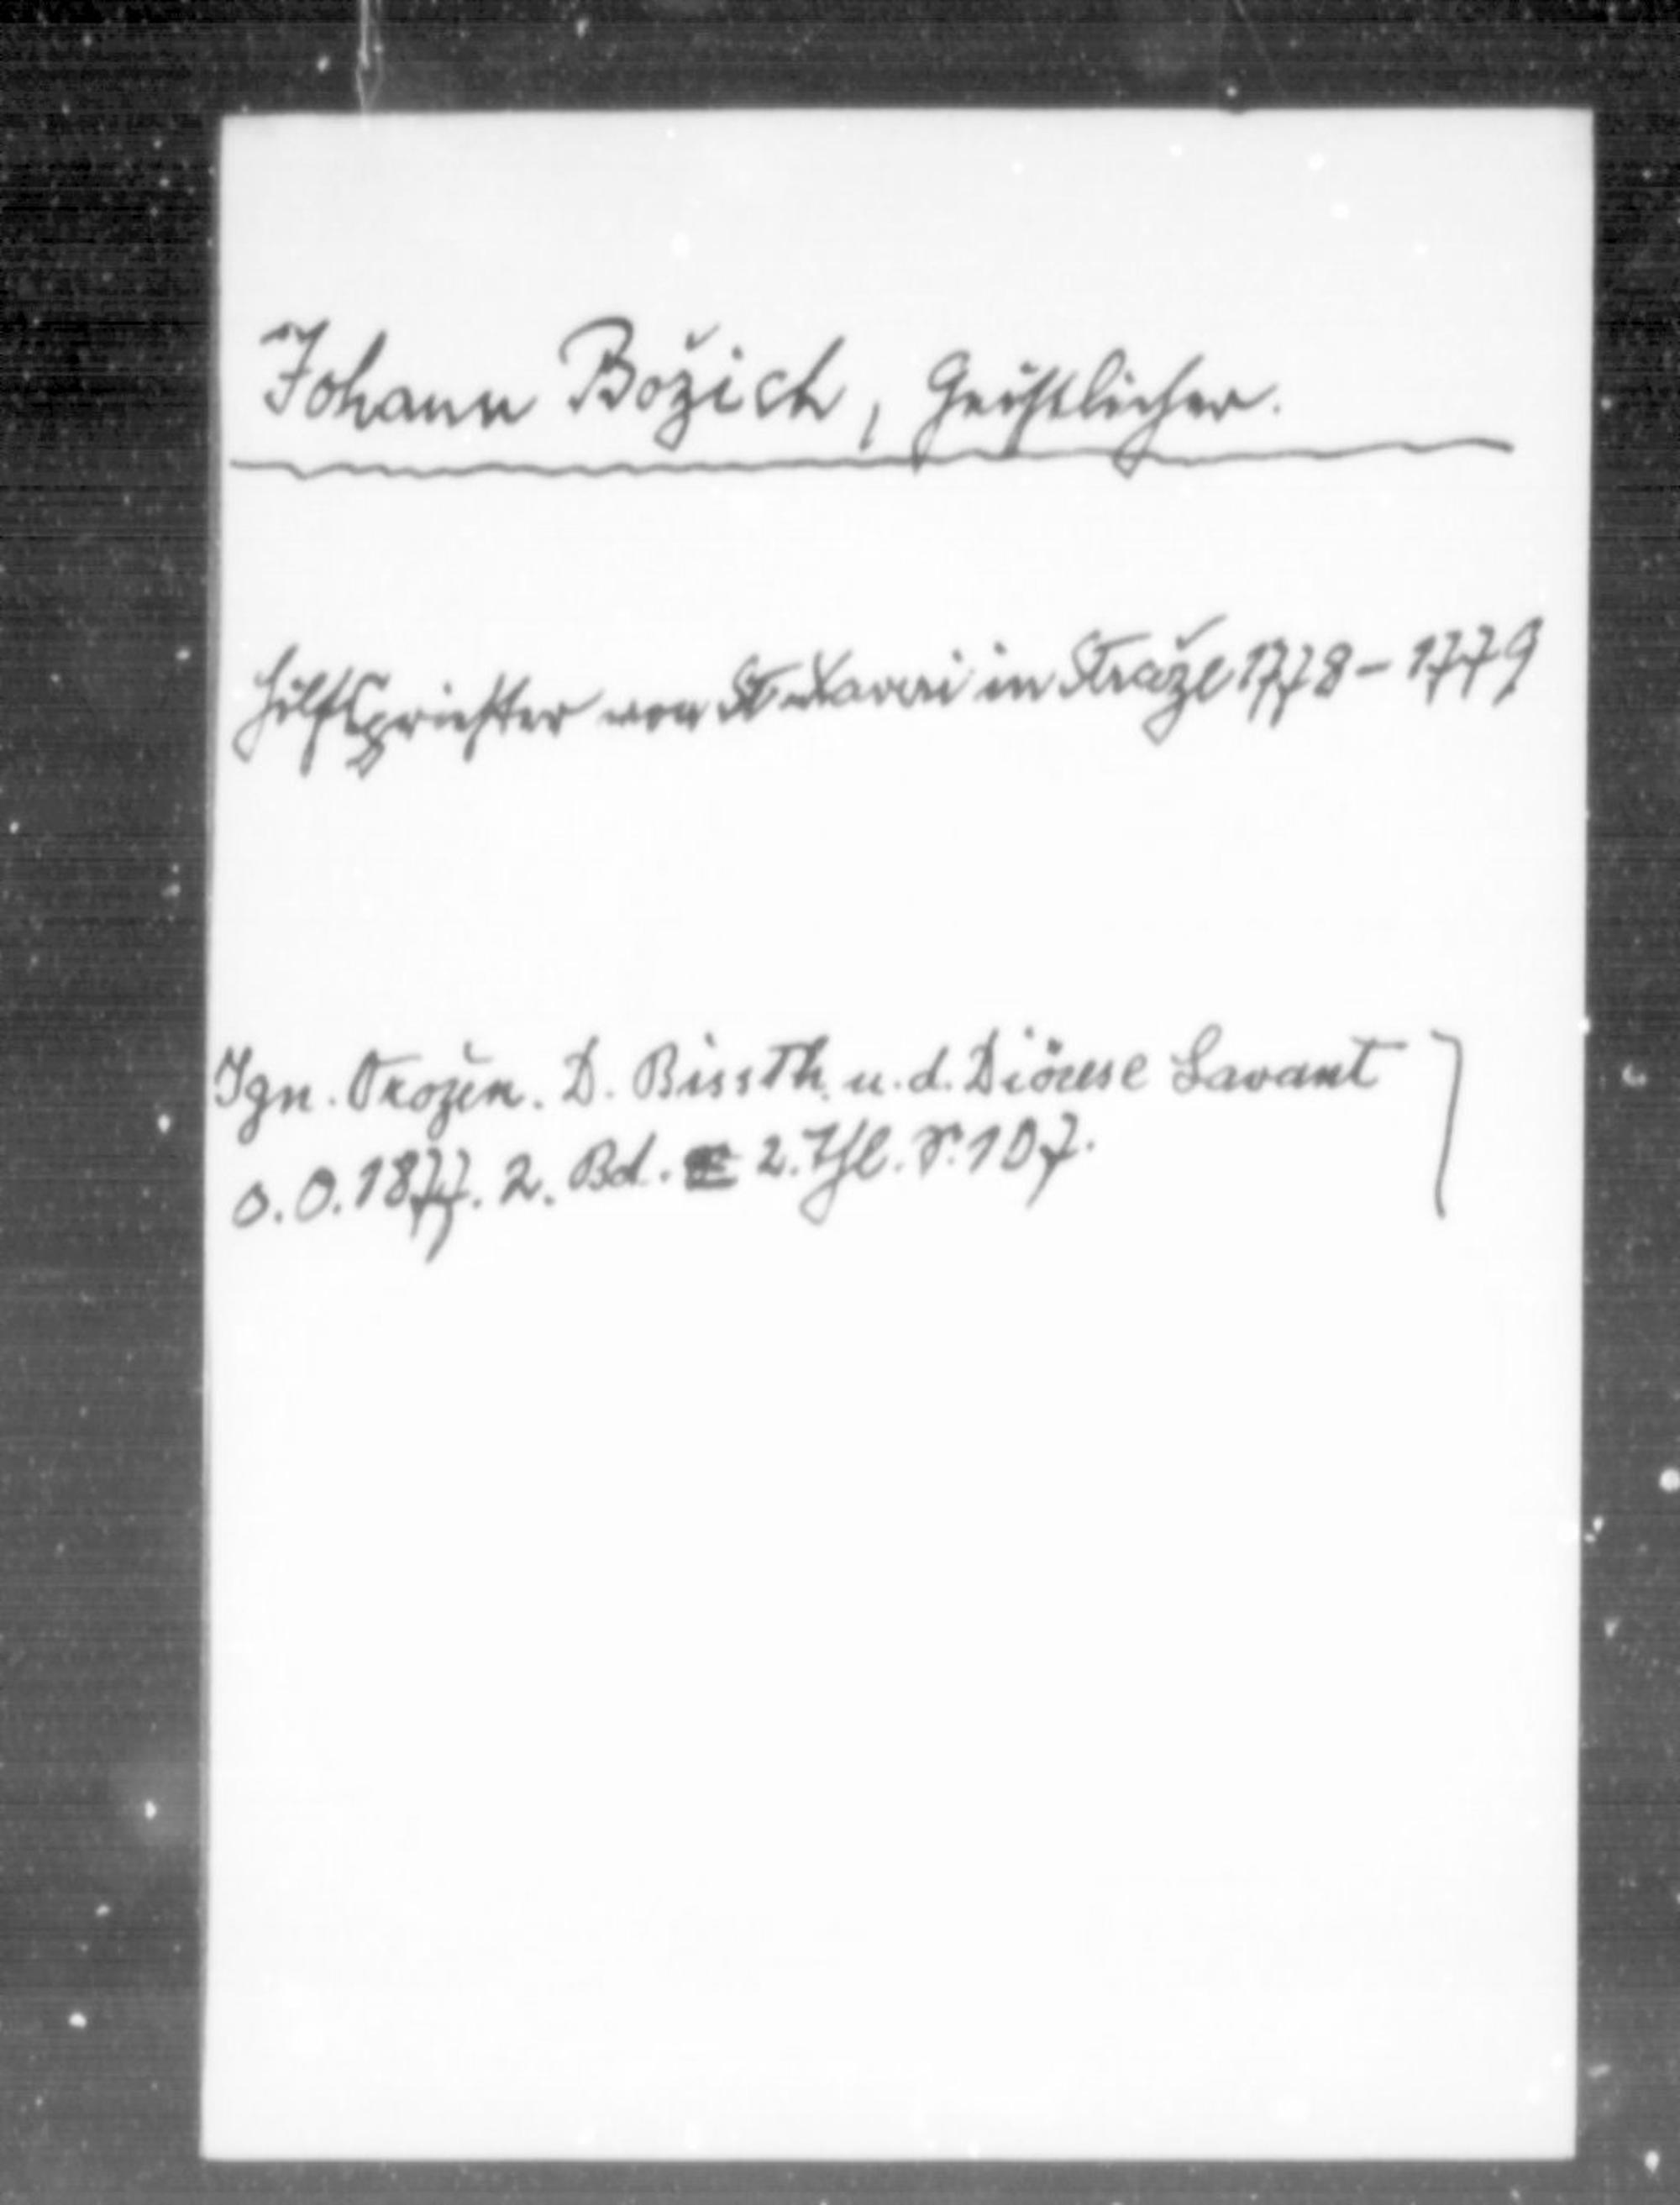 Johann Božich, Geistlicher.
Hilfspriester von St Xaveri in Straže 1778 - 1779
Ign. Orožen. D. Bissth. u. d. Diöcese Lavant
o. O. 1877. 2. Bd. 2. Thl. S. 107.